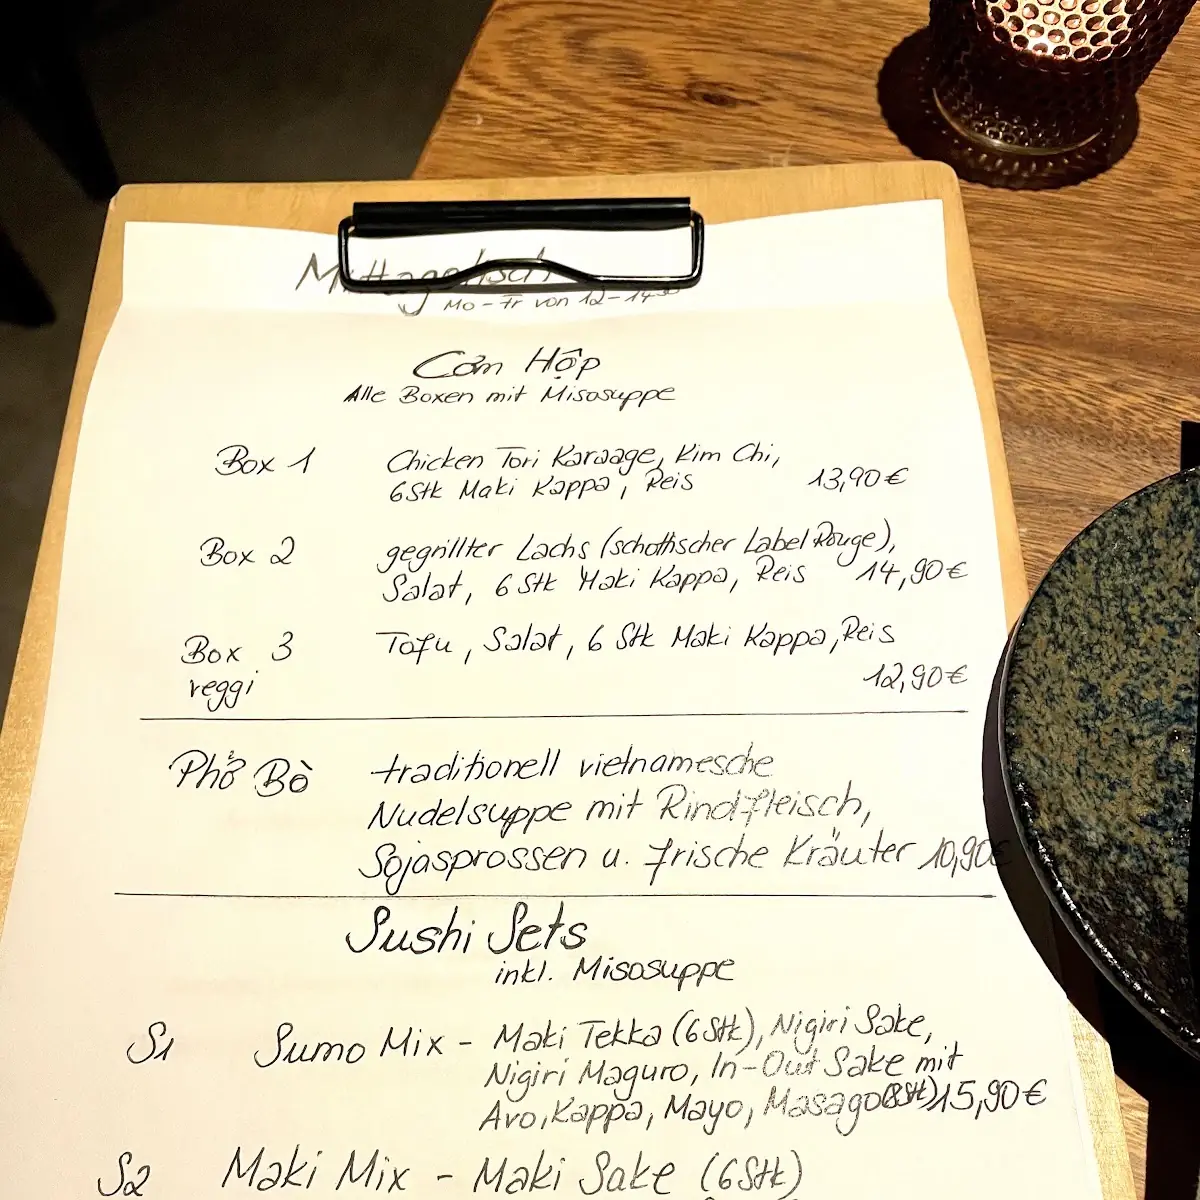 Mittagstisch
Mo - Fr von 12 - 14³⁰
Cơm Hộp
Alle Boxen mit Misosuppe
Box 1 Chicken Tori Karaage, Kim Chi,
6 Stk Maki Kappa, Reis 13,90€
Box 2 gegrillter Lachs (schottischer Label Rouge),
Salat, 6 Stk Maki Kappa, Reis 14,90€
Box 3 Tofu, Salat, 6 Stk Maki Kappa, Reis
veggi 12,90€
Phở Bò traditionell vietnamesche
Nudelsuppe mit Rindfleisch,
Sojasprossen u. frische Kräuter 10,90€
Sushi Sets
inkl. Misosuppe
S1 Sumo Mix - Maki Tekka (6Stk), Nigiri Sake,
Nigiri Maguro, In-Out Sake mit
Avo, Kappa, Mayo, Masago (8Stk) 15,90€
S2 Maki Mix - Maki Sake (6Stk)